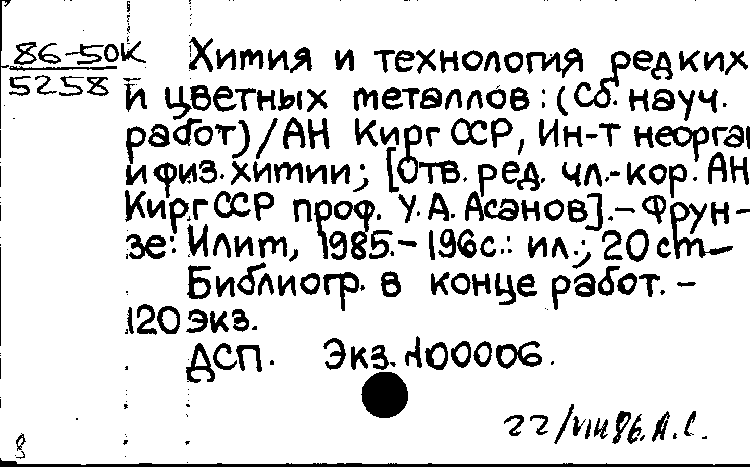 86-50К Химия и технология редких
5258 и цветных металлов: (Сб. науч.
работ)/АН Кирг ССР, Ин-т неорган
и физ. химии; [Отв. ред. чл.-кор. АН
Кирг ССР проф. У. А. Асанов]. - Фрун-
зе: Илим, 1985. - 196 с.: ил.; 20 cm -
Библиогр. в конце работ. -
120 экз.
ДСП. Экз. №00006.
22/VIII 86. А. С.
8